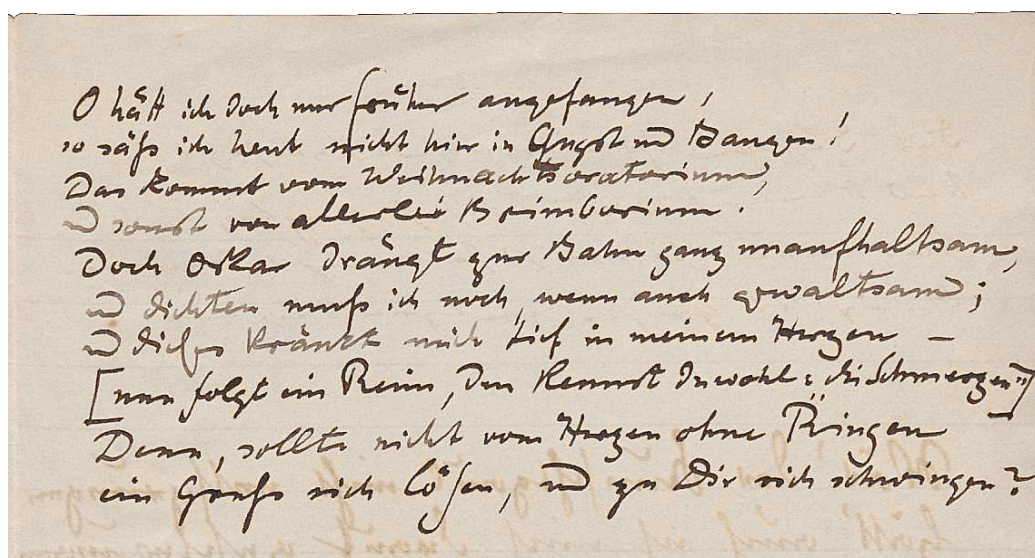 O hätt ich doch nur früher angefangen,
so säß ich heut nicht hier in Angst und Bangen!
Das kommt vom Weihnachtsoratorium,
und sonst von allerlei Brimborium.
Doch Oskar drängt zur Bahn ganz unaufhaltsam,
und dichten muß ich noch, wenn auch gewaltsam;
und dieses kränkt mich tief in meinem Herzen —
[nun folgt ein Reim, den kennst du wohl: die Schmerzen"]
Denn, sollte nicht vom Herzen ohne Ringen
ein Gruß sich lösen, und zu Dir sich schwingen?